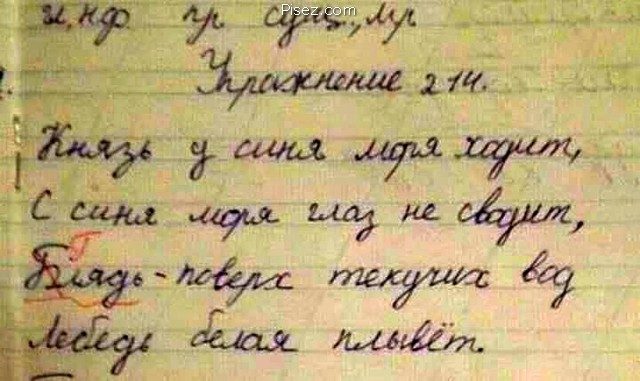 Pisez.com
и,нф пр сущ., мр
Упражнение 214.
Князь у синя моря ходит,
С синя моря глаз не сводит,
Г
Блядь - поверх текучих вод
Лебедь белая плывёт.